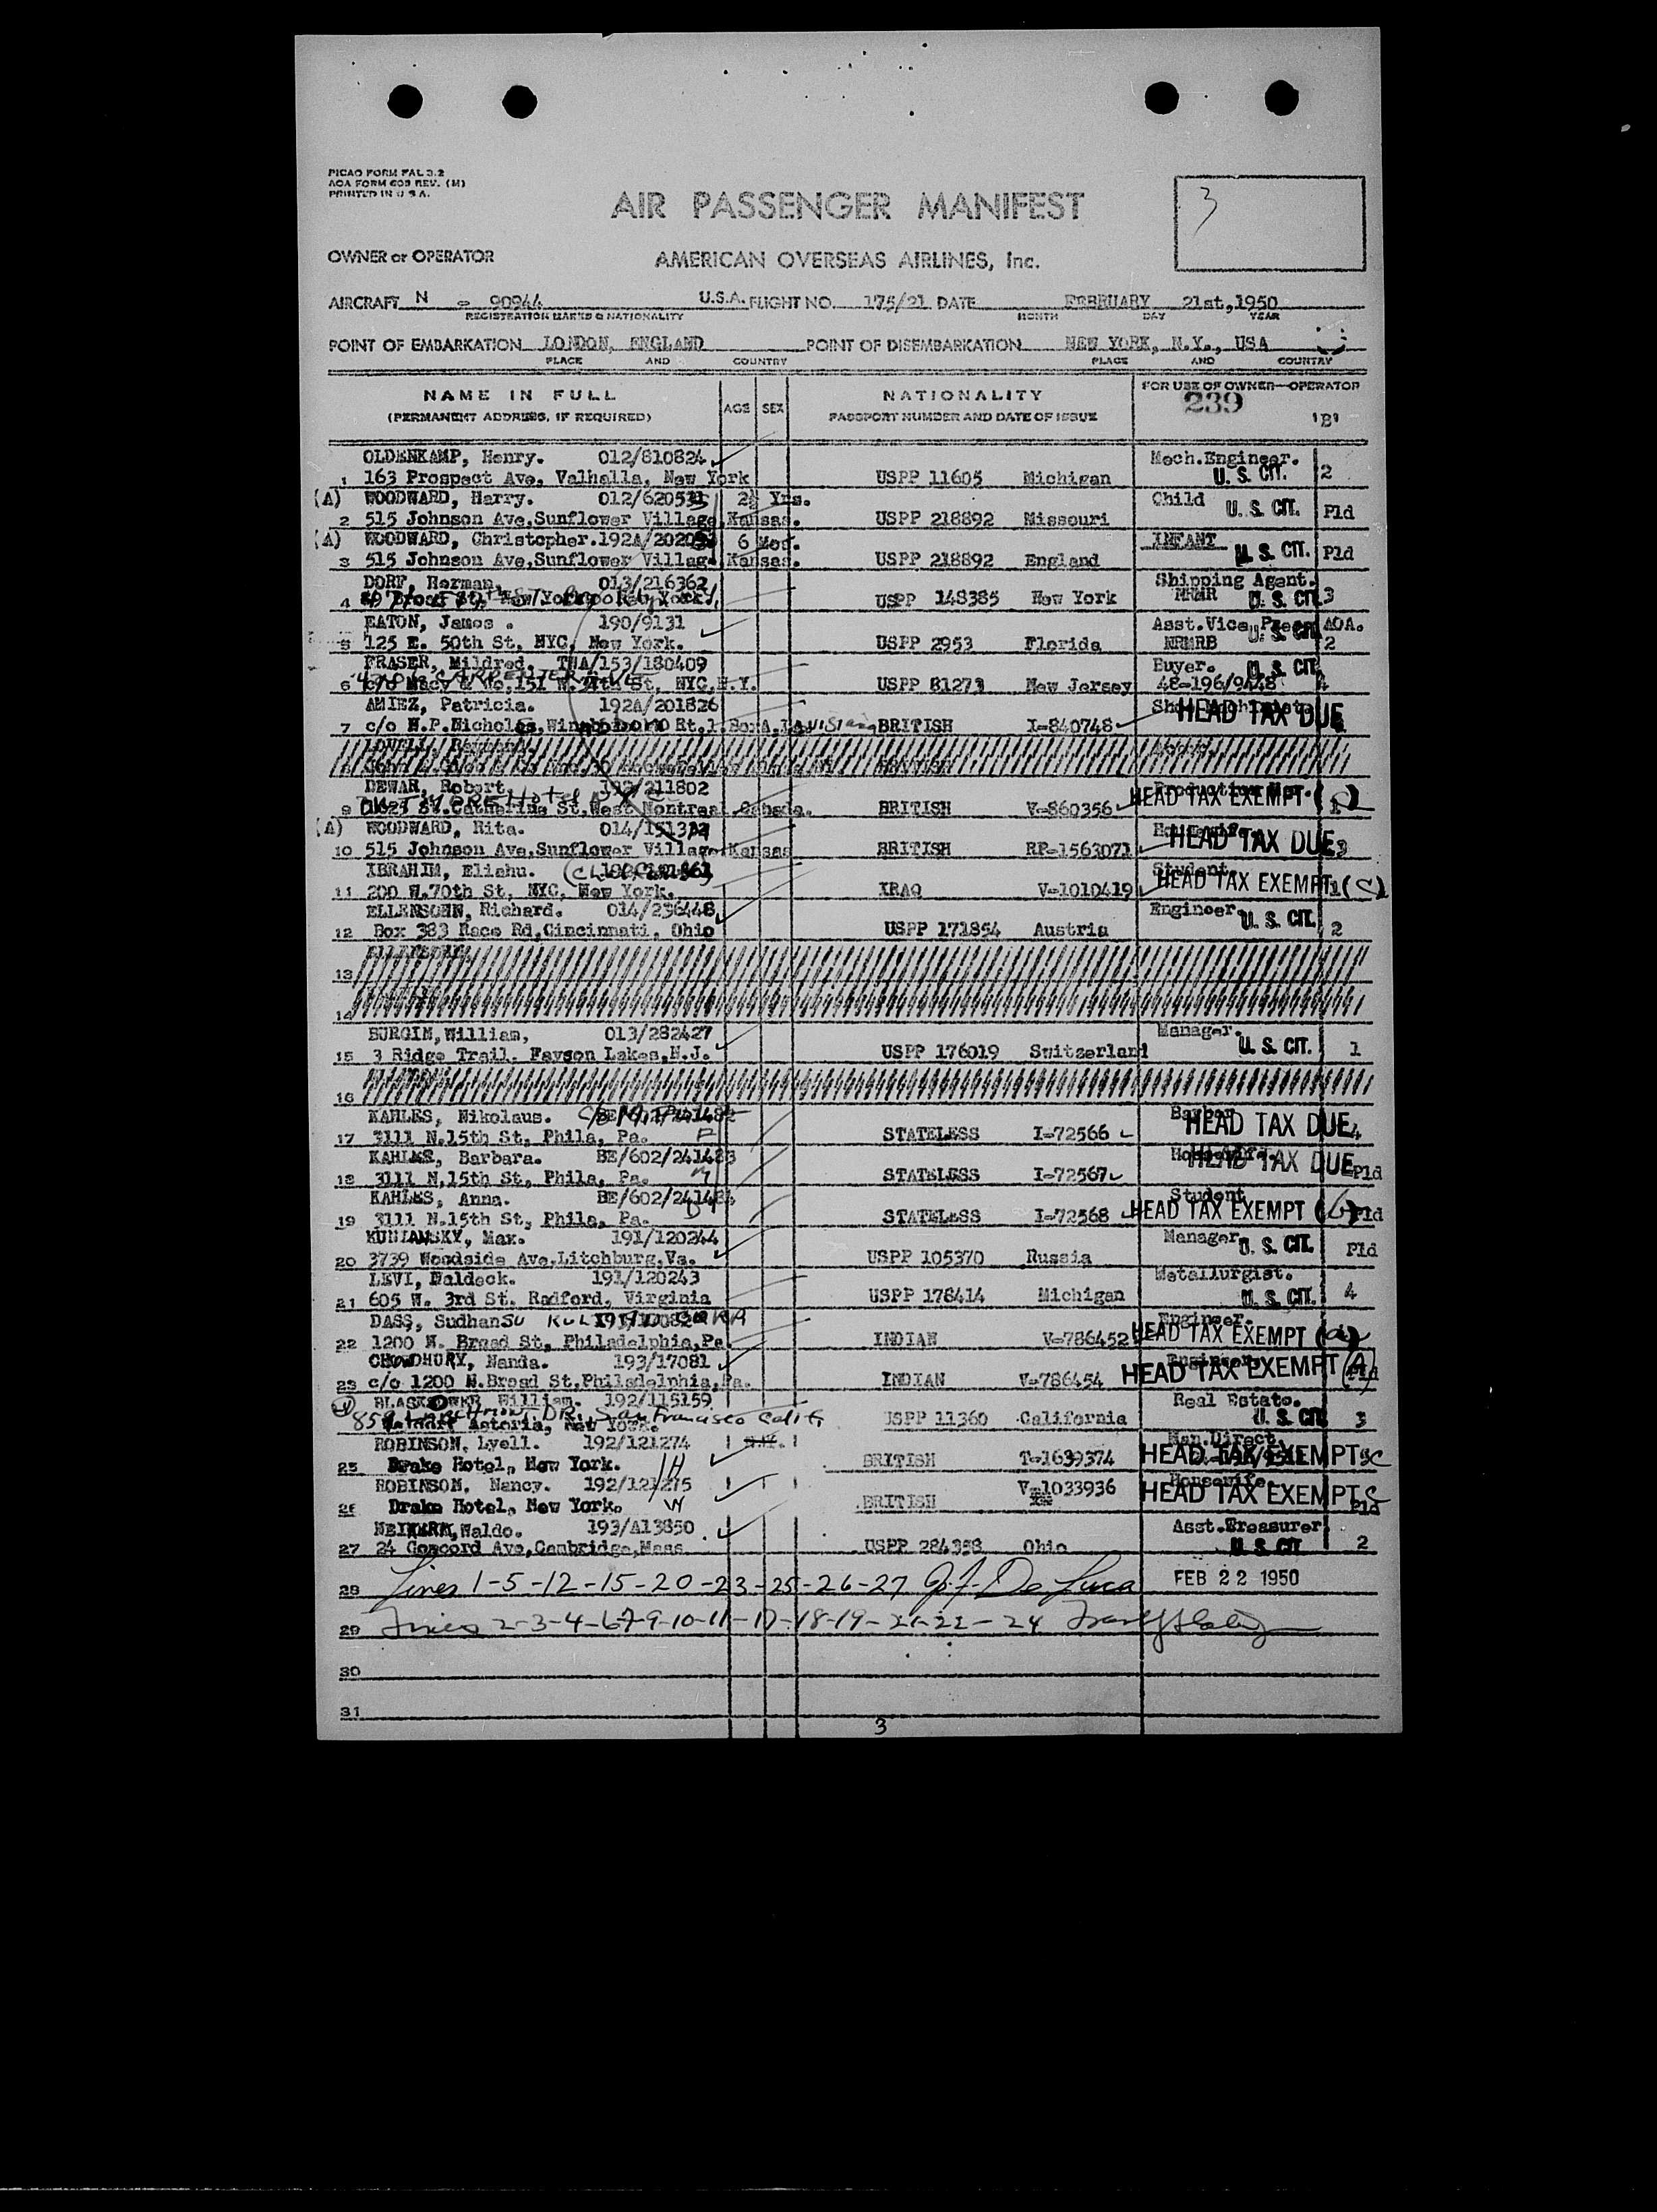 PICAO FORM FAL 3.2
AOA FORM 603 REV. (M)
PRINTED IN U S A.
3
AIR PASSENGER MANIFEST
OWNER or OPERATOR
AMERICAN OVERSEAS AIRLINES, Inc.
AIRCRAFT N - 90944 U.S.A. FLIGHT NO. 175/21 DATE FEBRUARY 21st,1950
REGISTRATION MARKS & NATIONALITY MONTH DAY YEAR
POINT OF EMBARKATION LONDON, ENGLAND POINT OF DISEMBARKATION NEW YORK, N.Y., USA
PLACE AND COUNTRY PLACE AND COUNTRY
NAME IN FULL AGE SEX NATIONALITY FOR USE OF OWNER—OPERATOR
(PERMANENT ADDRESS, IF REQUIRED) PASSPORT NUMBER AND DATE OF ISSUE 239 'B'
OLDENKAMP, Henry. 012/810824 Mech.Engineer.
1 163 Prospect Ave, Valhalla, New York USPP 11605 Michigan U. S. CIT. 2
(A) WOODWARD, Harry. 2½ Yrs. Child
2 515 Johnson Ave,Sunflower Village,Kansas. USPP 218892 Missouri U. S. CIT. Pld
(A) WOODWARD, Christopher. 6 Mos. INFANT
3 515 Johnson Ave,Sunflower Village Kansas. USPP 218892 England U. S. CIT. Pld
DORF, Herman. 013/216362 Shipping Agent.
4 USPP 148385 New York U. S. CIT. 3
EATON, James . 190/9131 Asst.Vice Pres. AOA.
5 125 E. 50th St, NYC, New York. USPP 2953 Florida NRMRB U. S. CIT. 2
FRASER, Mildred. TWA/153/180409 Buyer. U. S. CIT
6 c/o Macy & Co,151 W.34th St, NYC,N.Y. USPP 81273 New Jersey 48-196/9448 4
AMIEZ, Patricia. 192A/201826
7 c/o N.P.Nicholes, Rt,1.BoxA,Louisiana BRITISH I-840748 HEAD TAX DUE
LOVELL,
DEWAR, Robert. 192/211802
9 St.Catherine St,West Montreal Canada. BRITISH V-860356 HEAD TAX EXEMPT
(A) WOODWARD, Rita. Housewife.
10 515 Johnson Ave,Sunflower Village Kansas BRITISH RP-1563071 HEAD TAX DUE 3
IBRAHIM, Eliahu. Student.
11 200 W.70th St, NYC, New York. IRAQ V-1010419 HEAD TAX EXEMPT 1 (C)
ELLENSOHN, Richard. 014/236448 Engineer
12 Box 383 Race Rd,Cincinnati, Ohio USPP 171854 Austria U. S. CIT. 2
13
14
BURGIN,William, 013/282427 Manager.
15 3 Ridge Trail. Fayson Lakes,N.J. USPP 176019 Switzerland U. S. CIT. 1
16
KAHLES, Nikolaus. Barber
17 3111 N.15th St, Phila, Pa. F STATELESS I-72566 HEAD TAX DUE 4
KAHLES, Barbara. BE/602/241483 Housewife.
18 3111 N.15th St, Phila, Pa. M STATELESS I-72567 HEAD TAX DUE Pld
KAHLES, Anna. BE/602/241484 Student
19 3111 N.15th St, Phila, Pa. D STATELESS I-72568 HEAD TAX EXEMPT (b) Pld
KUNIANSKY, Max. 191/120244 Manager
20 3739 Woodside Ave,Litchburg,Va. USPP 105370 Russia U. S. CIT. Pld
LEVI, Waldeck. 191/120243 Metallurgist.
21 605 W. 3rd St. Radford, Virginia USPP 178414 Michigan U. S. CIT. 4
DASS, SudhanSU Engineer.
22 1200 N. Broad St, Philadelphia,Pa. INDIAN V-786452 HEAD TAX EXEMPT (a)
CHOWDHURY, Nanda. 193/17081 Engineer
23 c/o 1200 N.Broad St,Philadelphia,Pa. INDIAN V-786454 HEAD TAX EXEMPT (A) Pld
William. 192/115159 Real Estate.
859 DR. San Francisco Calif.
Waldorf Astoria, New York. USPP 11360 California U. S. CIT 3
ROBINSON, Lyell. 192/121274 Man.Direct.
25 Drake Hotel, New York. H BRITISH T-1639374 HEAD TAX EXEMPT C
ROBINSON, Nancy. 192/121275 Housewife.
26 Drake Hotel, New York. W BRITISH V-1033936 HEAD TAX EXEMPT C Pld
Waldo. 193/A13850 Asst.Treasurer
27 24 Concord Ave,Cambridge,Mass USPP 284398 Ohio U. S. CIT 2
28 Lines 1-5-12-15-20-23-25-26-27 J.F. De Luca FEB 22 1950
29 Lines 2-3-4-6-7-9-10-11-17-18-19-21-22-24
30
31
3